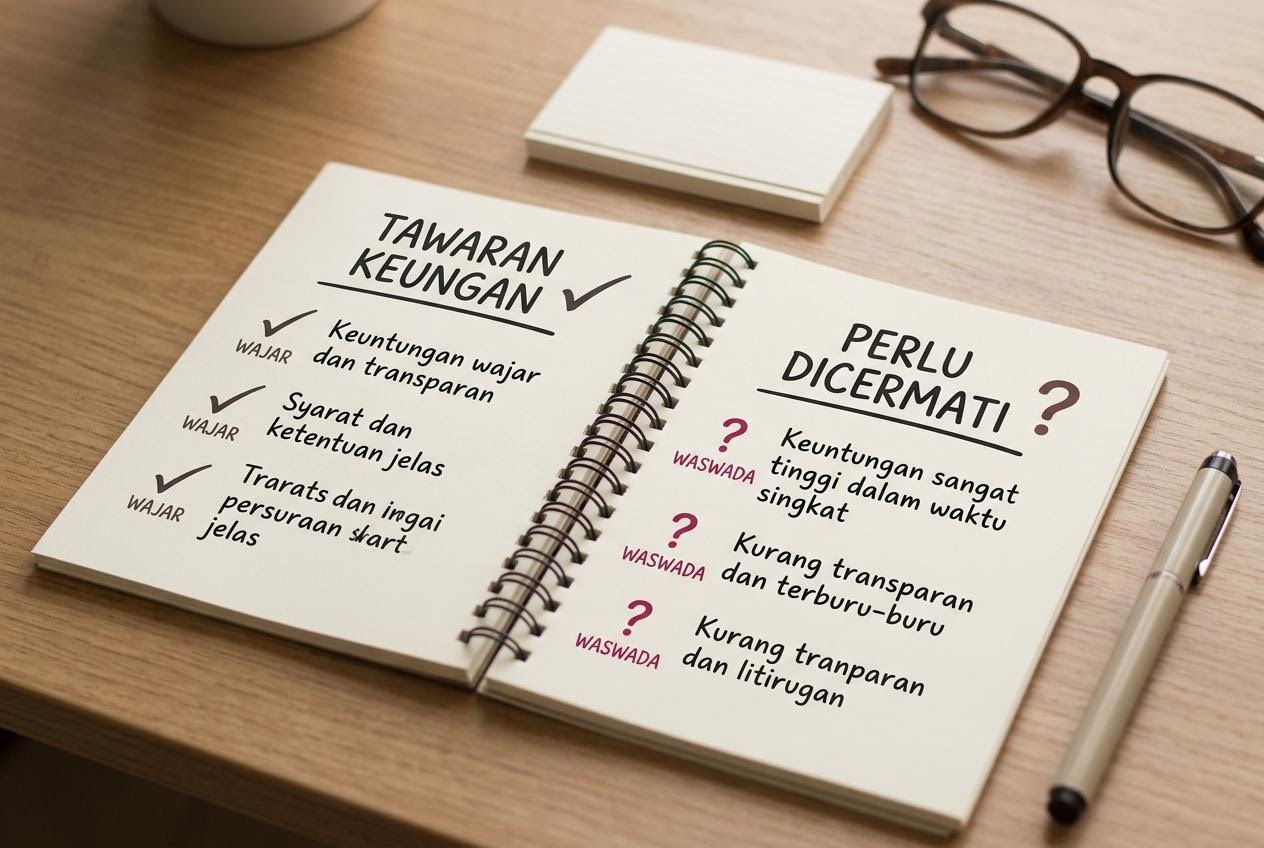 TAWARAN
KEUNGAN
WAJAR
Keuntungan wajar
dan transparan
WAJAR
Syarat dan
ketentuan jelas
WAJAR
Trarats dan ingai
persuraan skart
jelas
PERLU
DICERMATI ?
?
WASWADA
Keuntungan sangat
tinggi dalam waktu
singkat
?
WASWADA
Kurang transparan
dan terburu-buru
?
WASWADA
Kurang tranparan
dan litirugan